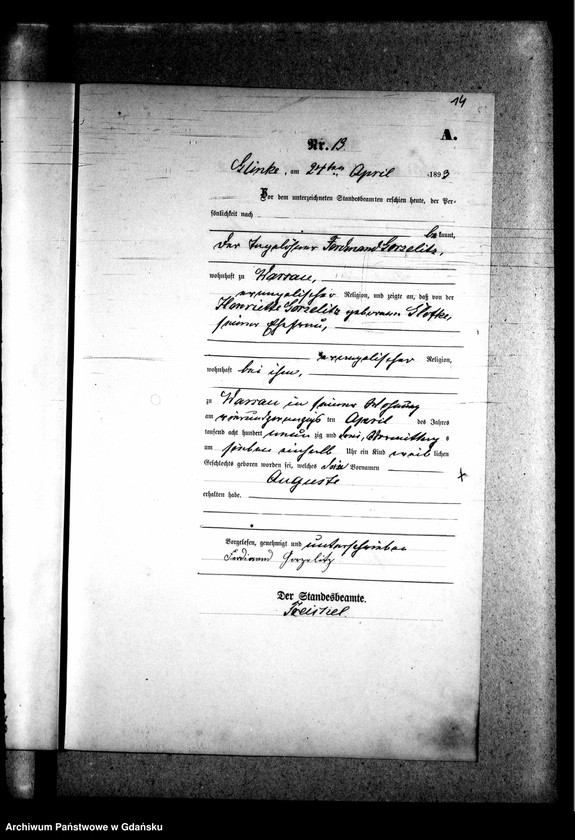 14
A.
Nr. 13
Glinke, am 24ten April 1893
Vor dem unterzeichneten Standesbeamten erschien heute, der Per-
sönlichkeit nach
be kannt,
der Tagelöhner Ferdinand Gorzelitz,
wohnhaft zu Warsau,
evangelischer Religion, und zeigte an, daß von der
Henriette Gorzelitz geborenen
seiner Ehefrau,
evangelischer Religion,
wohnhaft bei ihm,
zu Warsau in seiner Wohnung
am vierundzwanzigsten April des Jahres
tausend acht hundert neun zig und drei, Vormittags
um sieben einhalb Uhr ein Kind weib lichen
Geschlechts geboren worden sei, welches den Vornamen
Auguste
erhalten habe.
Vorgelesen, genehmigt und unterschrieben
Ferdinand Gorzelitz
Der Standesbeamte.
Archiwum Państwowe w Gdańsku